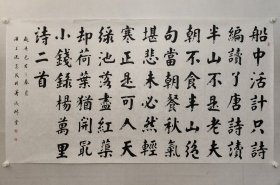 船中活計只詩
編讀了唐詩讀
半山不是老夫
朝不食半山絕
句當朝餐秋氣
堪悲未必然輕
寒正是可人天
綠池落盡紅蕖
却荷葉猶開最
小錢錄楊萬里
詩二首